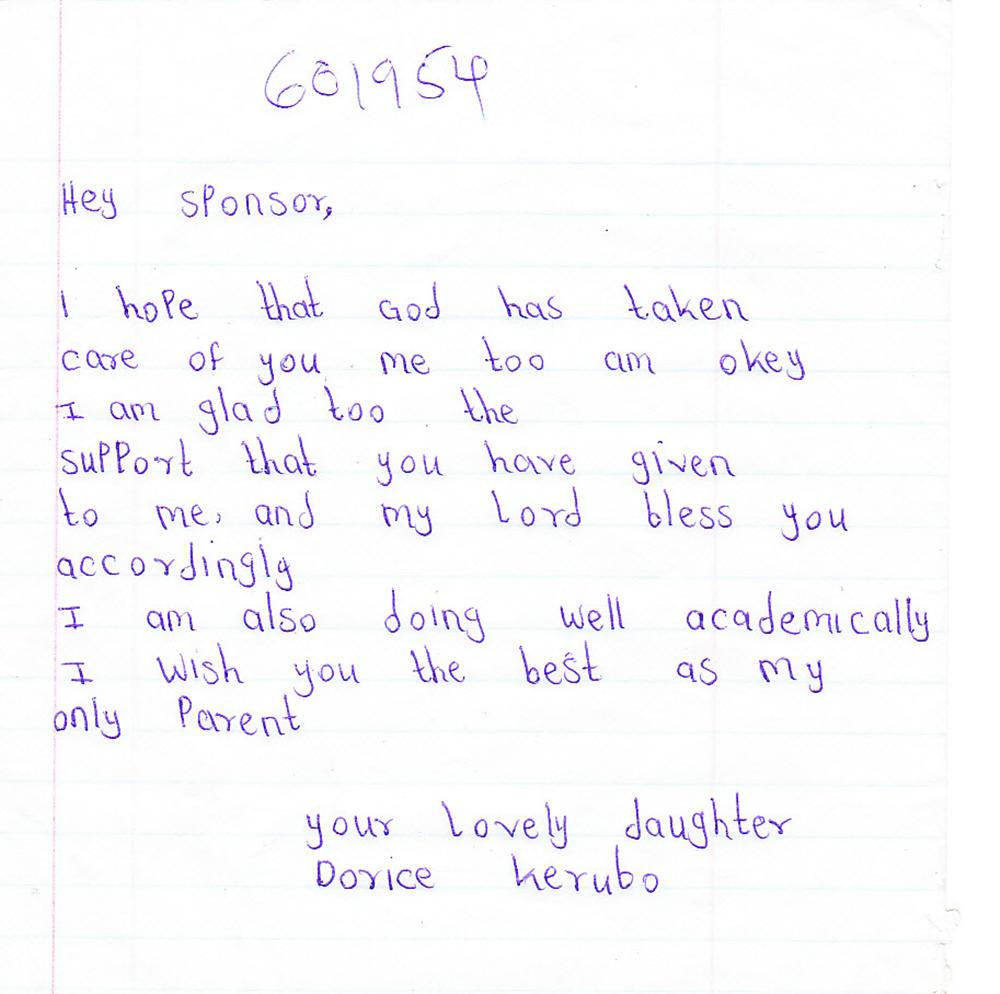 601954
Hey sponsor,
I hope that God has taken
care of you me too am okey
I am glad too the
support that you have given
to me, and my Lord bless you
accordingly
I am also doing well academically
I wish you the best as my
only Parent
your lovely daughter
Dorice kerubo